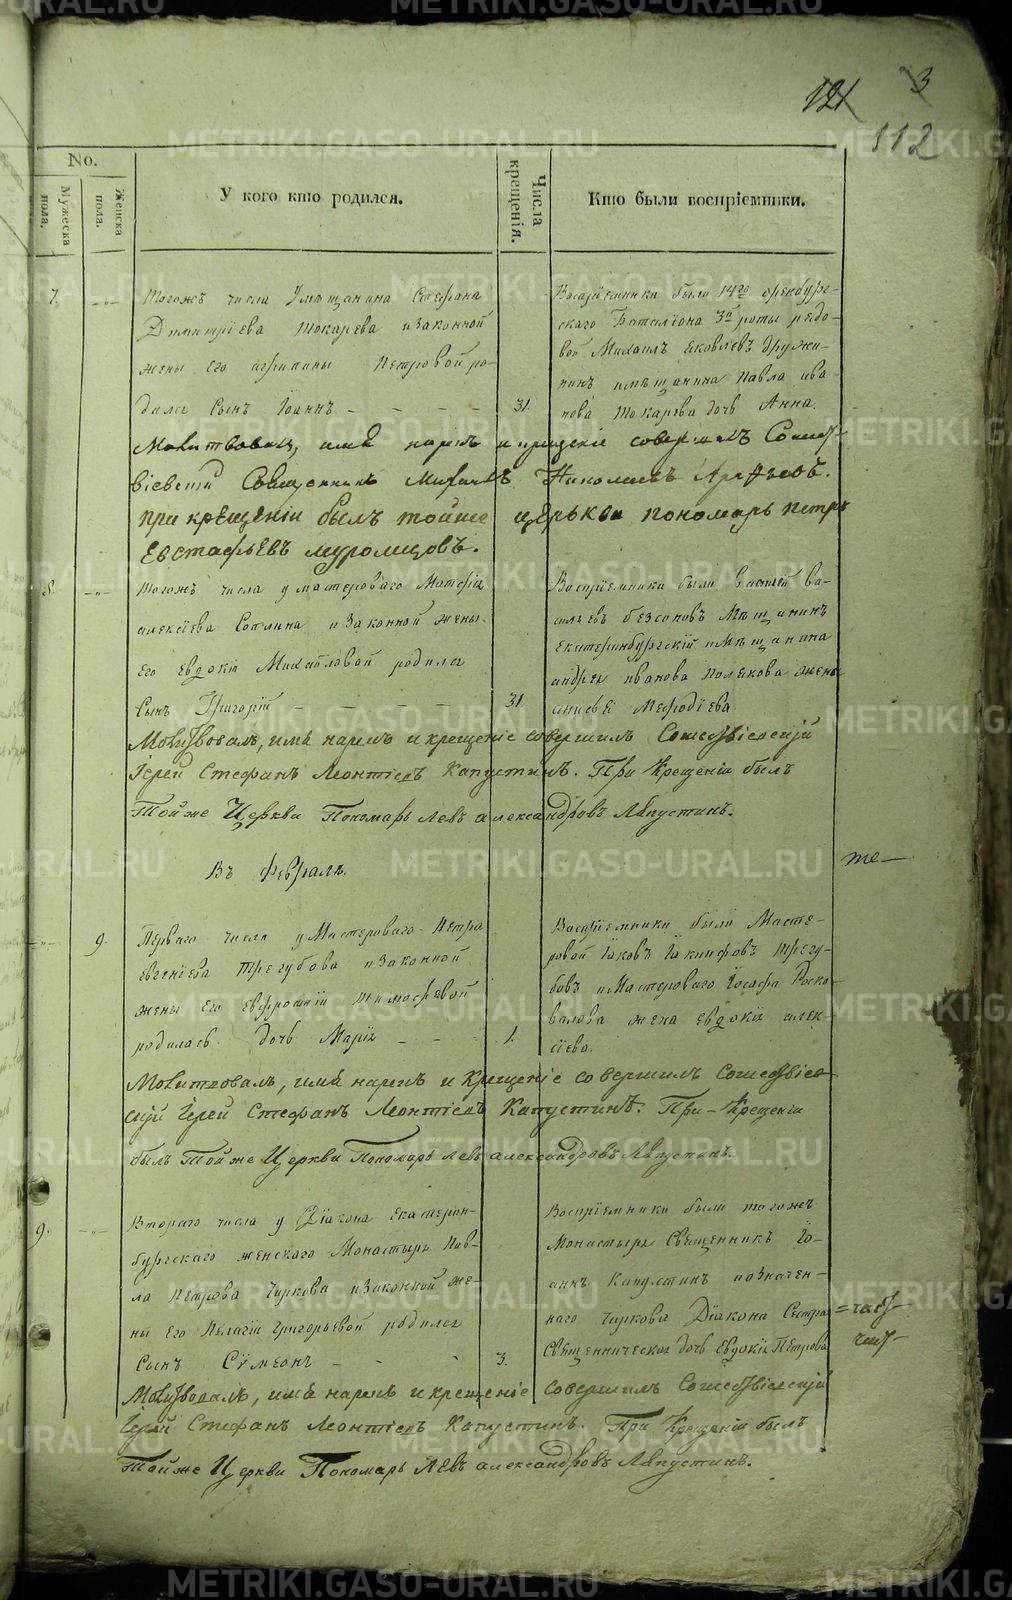 121 3
112
No.
Мужеска пола.
Женска пола.
У кого кто родился.
Числа крещенія.
Кто были воспріемники.
7. Тогожъ числа Умѣщанина Стефана
Димитріева Токарева изаконной
жены его агрипины Петровой ро-
дился Сынъ Іоаннъ 31.
Воспріемники были 14го оренбург-
скаго Баталіона 3й роты рядо-
вой Михаилъ яковлевъ дружи-
нинъ имѣщанина Павла ива-
нова Токарева дочь Анна.
Молитвовалъ, имя нарекъ и крещеніе совершилъ Сошест-
віевскій Священникъ Михаилъ Николаевъ
при крещеніи былъ тойже церькви пономарь петръ
Евстафьевъ муромцовъ.
8. Тогожъ числа умастероваго Матфія
алексіева Соплина изаконной жены
его евдокіи Михайловой родился
Сынъ Григорій 31
Воспріемники были ва-
сильевъ безсоновъ Мѣщанинъ
екатеринбургскій имѣщанина
андрея иванова полякова жена
Мефодіева
Молитвовалъ, имя нарекъ и крещеніе совершилъ Сошествіевскій
Іерей Стефанъ Леонтіевъ Капустинъ. При Крещеніи былъ
Тойже Церкви Пономарь Левъ александровъ Ляпустинъ.
Въ Февралѣ.
те
9. Перваго числа уМастероваго Петра
евгеніева Трегубова изаконной
жены его евфросиніи тимофеевой
родилась дочь Марія 1.
Воспріемники были Масте-
ровой Іаковъ Іакинфовъ трегу-
бовъ иМастероваго Іосафа Роско-
валова жена евдокія алек-
сіева.
Молитвовалъ, имя нарекъ и крещеніе совершилъ Сошествіев-
скій Іерей Стефанъ Леонтіевъ Капустинъ. При Крещеніи
былъ Тойже Церкви Пономарь Левъ александровъ Ляпустинъ.
9. Втораго числа у Діакона Екатерин-
бургскаго женскаго Монастыря Пав-
ла Петрова Чиркова изаконной же-
ны его Пелагіи григорьевой родился
Сынъ Сѵмеонъ 3.
Воспріемники были тогожъ
Монастыря Священникъ Іо-
аннъ Капустинъ иозначен-
наго Чиркова Діакона Сестра
Священническая дочь Евдокія Петрова
Молитвовалъ, имя нарекъ и крещеніе совершилъ Сошествіевскій
Іерей Стефанъ Леонтіевъ Капустинъ. При Крещеніи былъ
Тойже Церкви Пономарь Левъ александровъ Ляпустинъ.
METRIKI.GASO-URAL.RU